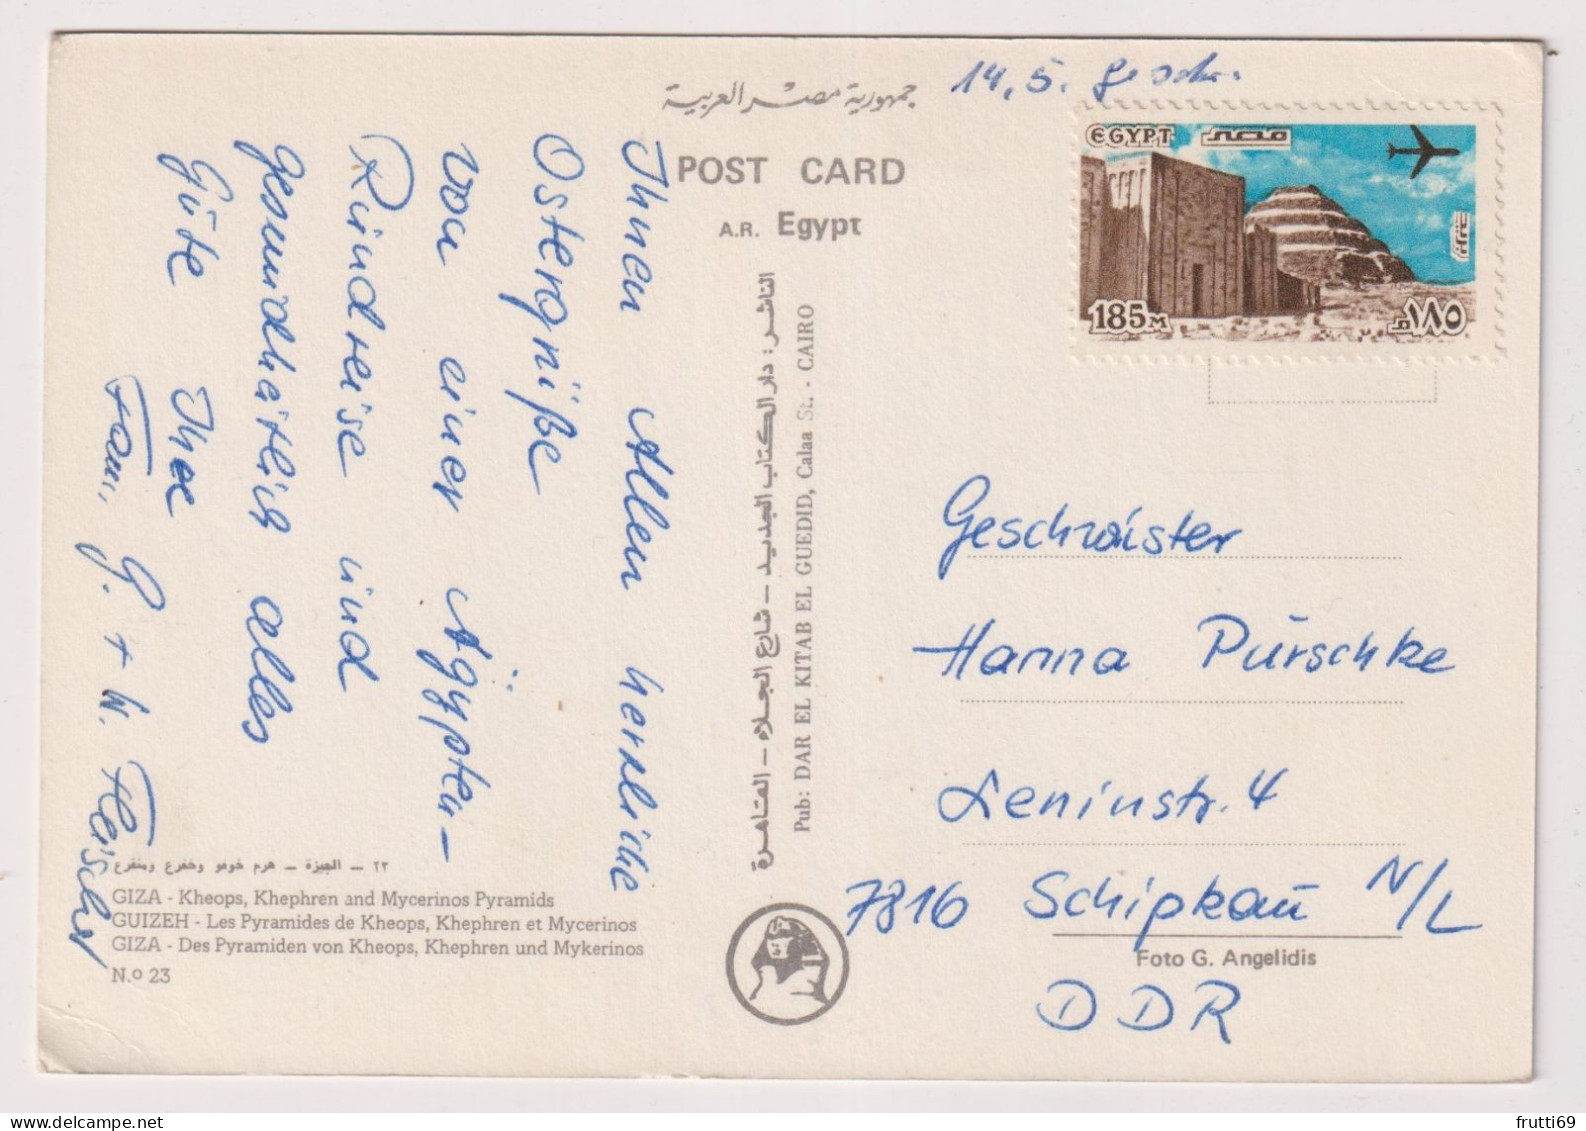 14.5. geschr.
جمهورية مصر العربية
POST CARD
A.R. Egypt
EGYPT مصر
185M ١٨٥م
Ihnen Allen herzliche
Ostergrüße
von einer Ägypten-
Rundreise und
gesundheitlich alles
Gute Ihre
Fam. G. + W. Fleischer
الناشر: دار الكتاب الجديد - شارع الجلاء - القاهرة
Pub: DAR EL KITAB EL GUEDID, Calaa St. - CAIRO
Geschwister
Hanna Purschke
Leninstr. 4
7816 Schipkau N/L
DDR
Foto G. Angelidis
٢٣ - الجيزة - هرم خوفو وخفرع ومنقرع
GIZA - Kheops, Khephren and Mycerinos Pyramids
GUIZEH - Les Pyramides de Kheops, Khephren et Mycerinos
GIZA - Des Pyramiden von Kheops, Khephren und Mykerinos
N.º 23
frutti69